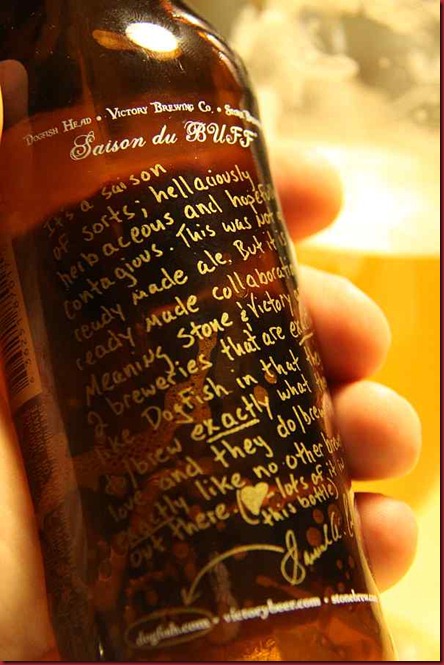 Dogfish Head • Victory Brewing Co. •
Saison du BUFF
It's a saison
of sorts; hellaciously
herbaceous and hopefully
contagious. This was not
ready made ale. But it
ready made
Meaning Stone & Victory
2 breweries that are
like Dogfish in that
/brew exactly what
love and they do/brew
exactly like no other
out there. (♥ lots of it
this bottle)
dogfish.com • victorybeer.com •